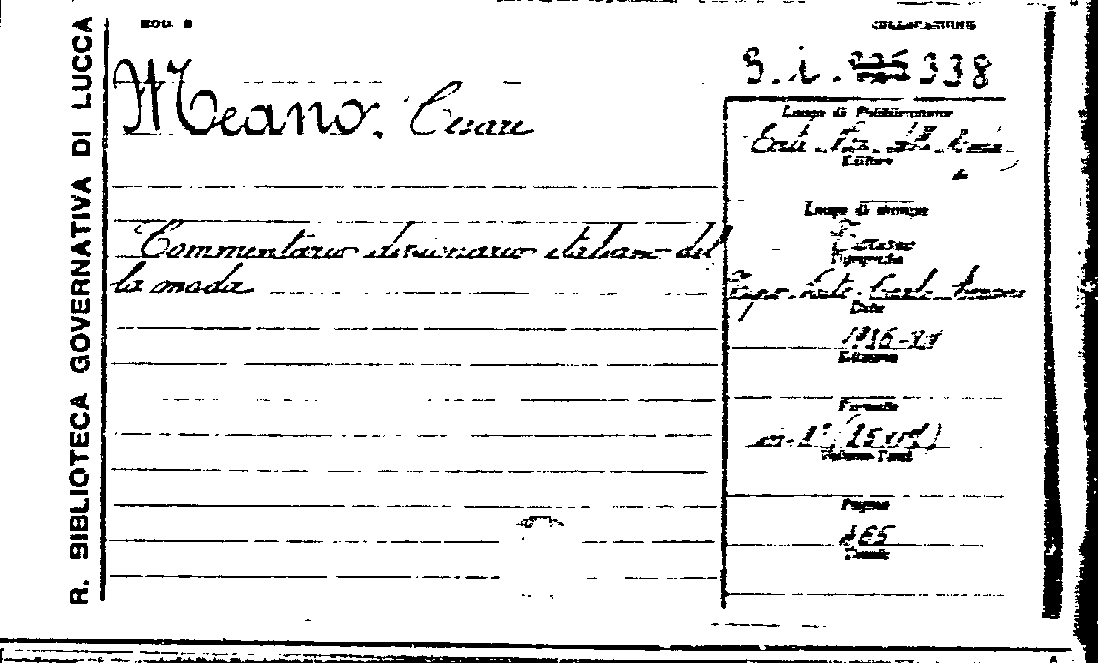 R. BIBLIOTECA GOVERNATIVA DI LUCCA
MOD. B
COLLOCAZIONE
338
Meano. Cesare
Commentario dizionario italiano del
la moda
Luogo di Pubblicazione
Ente Naz. della Moda
Editore
Luogo di stampa
Torino
Tipografia
Data
1936-XV
Edizione
Formato
Volumi
Pagine
465